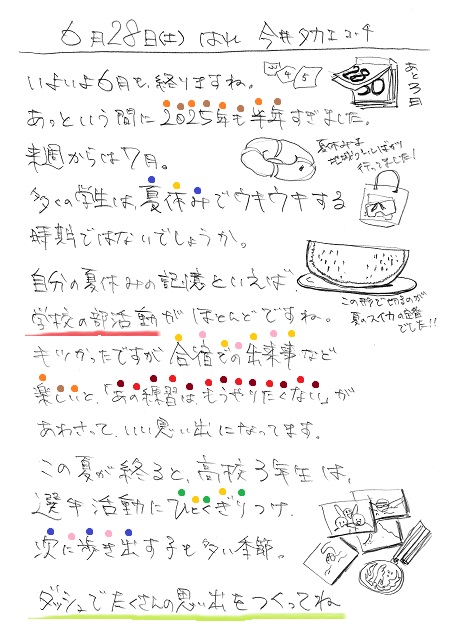 6月28日(土) はれ 今井タカエコーチ
いよいよ6月も、終りますね。
3 4 5
28
30
あと3日
あっという間に2025年も半年すぎました。
来週からは7月。
夏休みは
行ってました!
多くの学生は、夏休みでウキウキする
時期ではないでしょうか。
自分の夏休みの記憶といえば
この形で切るのが
夏のスイカの定番
でした!!
学校の部活動がほとんどですね。
もツかったですが合宿での出来事など
楽しいと、「あの練習は、もうやりたくない」が
あわさって、いい思い出になってます。
この夏が終ると、高校3年生は、
選手活動にひとくぎりつけ、
次に歩き出す子も多い季節。
ダッシュでたくさんの思い出をつくってね